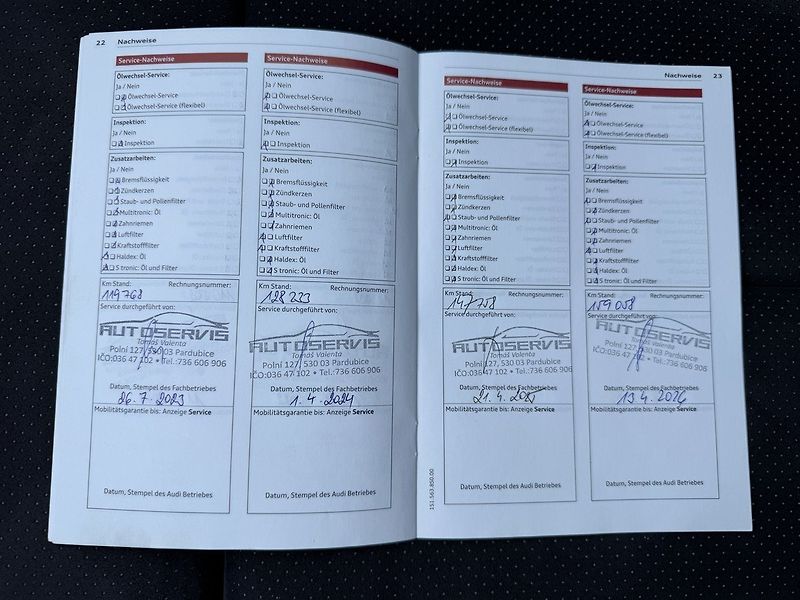 22 Nachweise
Service-Nachweise
Ölwechsel-Service:
Ja / Nein
Ölwechsel-Service
Ölwechsel-Service (flexibel)
Inspektion:
Ja / Nein
Inspektion
Zusatzarbeiten:
Ja / Nein
Bremsflüssigkeit
Zündkerzen
Staub- und Pollenfilter
Multitronic: Öl
Zahnriemen
Luftfilter
Kraftstofffilter
Haldex: Öl
S tronic: Öl und Filter
Km Stand: Rechnungsnummer:
119768
Service durchgeführt von:
AUTOSERVIS
Tomáš Valenta
Polní 127, 530 03 Pardubice
IČO:036 47 102 • Tel.:736 606 906
Datum, Stempel des Fachbetriebes
26.7.2023
Mobilitätsgarantie bis: Anzeige Service
Datum, Stempel des Audi Betriebes
Service-Nachweise
Ölwechsel-Service:
Ja / Nein
Ölwechsel-Service
Ölwechsel-Service (flexibel)
Inspektion:
Ja / Nein
Inspektion
Zusatzarbeiten:
Ja / Nein
Bremsflüssigkeit
Zündkerzen
Staub- und Pollenfilter
Multitronic: Öl
Zahnriemen
Luftfilter
Kraftstofffilter
Haldex: Öl
S tronic: Öl und Filter
Km Stand: Rechnungsnummer:
128 223
Service durchgeführt von:
AUTOSERVIS
Tomáš Valenta
Polní 127, 530 03 Pardubice
IČO:036 47 102 • Tel.:736 606 906
Datum, Stempel des Fachbetriebes
1.4.2024
Mobilitätsgarantie bis: Anzeige Service
Datum, Stempel des Audi Betriebes
Nachweise 23
Service-Nachweise
Ölwechsel-Service:
Ja / Nein
Ölwechsel-Service
Ölwechsel-Service (flexibel)
Inspektion:
Ja / Nein
Inspektion
Zusatzarbeiten:
Ja / Nein
Bremsflüssigkeit
Zündkerzen
Staub- und Pollenfilter
Multitronic: Öl
Zahnriemen
Luftfilter
Kraftstofffilter
Haldex: Öl
S tronic: Öl und Filter
Km Stand: Rechnungsnummer:
147758
Service durchgeführt von:
AUTOSERVIS
Tomáš Valenta
Polní 127, 530 03 Pardubice
IČO:036 47 102 • Tel.:736 606 906
Datum, Stempel des Fachbetriebes
21.4.2025
Mobilitätsgarantie bis: Anzeige Service
Datum, Stempel des Audi Betriebes
151.563.850.00
Service-Nachweise
Ölwechsel-Service:
Ja / Nein
Ölwechsel-Service
Ölwechsel-Service (flexibel)
Inspektion:
Ja / Nein
Inspektion
Zusatzarbeiten:
Ja / Nein
Bremsflüssigkeit
Zündkerzen
Staub- und Pollenfilter
Multitronic: Öl
Zahnriemen
Luftfilter
Kraftstofffilter
Haldex: Öl
S tronic: Öl und Filter
Km Stand: Rechnungsnummer:
159 058
Service durchgeführt von:
AUTOSERVIS
Tomáš Valenta
Polní 127, 530 03 Pardubice
IČO:036 47 102 • Tel.:736 606 906
Datum, Stempel des Fachbetriebes
13.4.2026
Mobilitätsgarantie bis: Anzeige Service
Datum, Stempel des Audi Betriebes